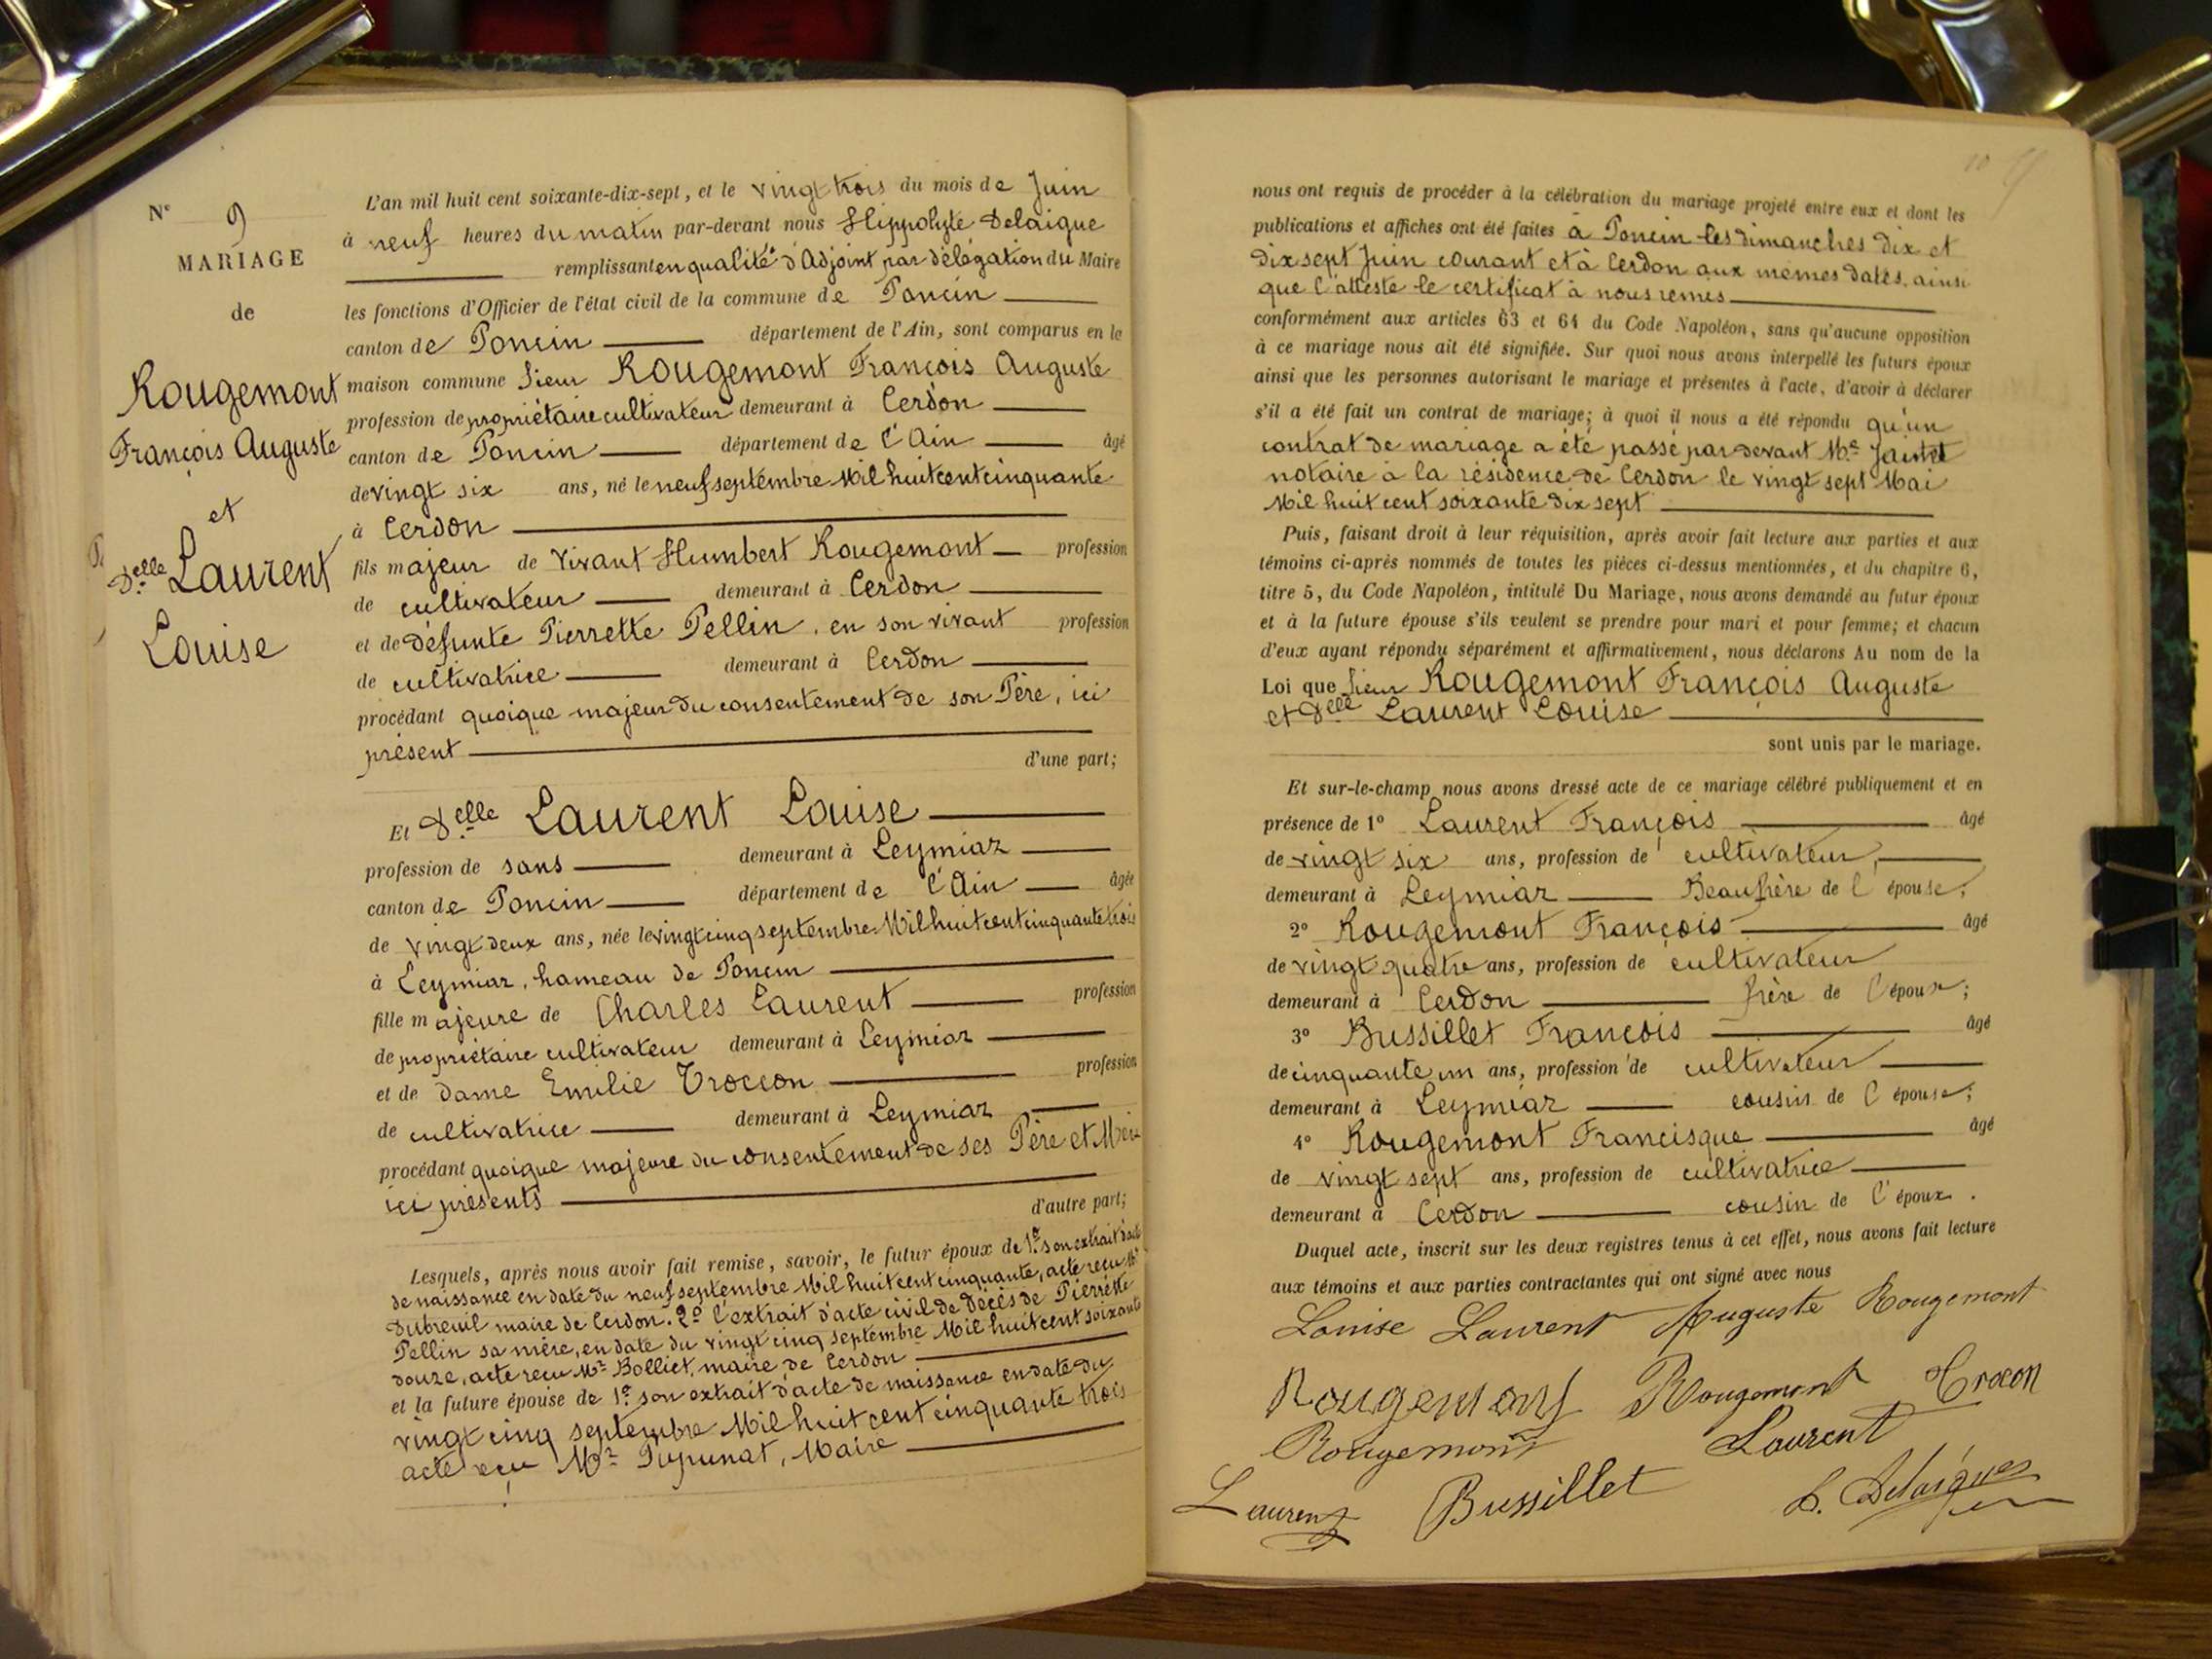 N° 9
MARIAGE
de
Rougemont
François Auguste
et
Delle Laurent
Louise
L'an mil huit cent soixante-dix-sept, et le vingt trois du mois de Juin
à neuf heures du matin par-devant nous Hippolyte Delaigue
remplissant en qualité d'Adjoint par délégation du Maire
les fonctions d'Officier de l'état civil de la commune de Poncin
canton de Poncin département de l'Ain, sont comparus en la
maison commune Sieur Rougemont François Auguste
profession de propriétaire cultivateur demeurant à Cerdon
canton de Poncin département de l'Ain âgé
de vingt six ans, né le neuf septembre Mil huit cent cinquante
à Cerdon
fils majeur de vivant Humbert Rougemont profession
de cultivateur demeurant à Cerdon
et de défunte Pierrette Pellin, en son vivant profession
de cultivatrice demeurant à Cerdon
procédant quoique majeur du consentement de son Père, ici
présent
d'une part;
Et Delle Laurent Louise
profession de sans demeurant à Leymiaz
canton de Poncin département de l'Ain âgée
de vingt deux ans, née le vingt cinq septembre Mil huit cent cinquante trois
à Leymiaz, hameau de Poncin
fille majeure de Charles Laurent profession
de propriétaire cultivateur demeurant à Leymiaz
et de Dame Emilie Troccon profession
de cultivatrice demeurant à Leymiaz
procédant quoique majeure du consentement de ses Père et Mère
ici présents
d'autre part;
Lesquels, après nous avoir fait remise, savoir, le futur époux de 1° son extrait d'acte
de naissance en date du neuf septembre Mil huit cent cinquante, acte reçu Mr
Dubreuil maire de Cerdon. 2° l'extrait d'acte civil de décès de Pierrette
Pellin sa mère, en date du vingt cinq septembre Mil huit cent soixante
douze, acte reçu Mr Bolliet, maire de Cerdon
et la future épouse de 1° son extrait d'acte de naissance en date du
vingt cinq septembre Mil huit cent cinquante trois
acte reçu Mr Pupunat, Maire
nous ont requis de procéder à la célébration du mariage projeté entre eux et dont les
publications et affiches ont été faites à Poncin les dimanches dix et
dix sept Juin courant et à Cerdon aux mêmes dates, ainsi
que l'atteste le certificat à nous remis
conformément aux articles 63 et 64 du Code Napoléon, sans qu'aucune opposition
à ce mariage nous ait été signifiée. Sur quoi nous avons interpellé les futurs époux
ainsi que les personnes autorisant le mariage et présentes à l'acte, d'avoir à déclarer
s'il a été fait un contrat de mariage; à quoi il nous a été répondu qu'un
contrat de mariage a été passé par devant Me
notaire à la résidence de Cerdon le vingt sept Mai
Mil huit cent soixante dix sept
Puis, faisant droit à leur réquisition, après avoir fait lecture aux parties et aux
témoins ci-après nommés de toutes les pièces ci-dessus mentionnées, et du chapitre 6,
titre 5, du Code Napoléon, intitulé Du Mariage, nous avons demandé au futur époux
et à la future épouse s'ils veulent se prendre pour mari et pour femme; et chacun
d'eux ayant répondu séparément et affirmativement, nous déclarons Au nom de la
Loi que Sieur Rougemont François Auguste
et Delle Laurent Louise
sont unis par le mariage.
Et sur-le-champ nous avons dressé acte de ce mariage célébré publiquement et en
présence de 1° Laurent François âgé
de vingt six ans, profession de cultivateur,
demeurant à Leymiaz Beaufrère de l'épouse;
2° Rougemont François âgé
de vingt quatre ans, profession de cultivateur
demeurant à Cerdon frère de l'époux;
3° Bussillet François âgé
de cinquante un ans, profession de cultivateur
demeurant à Leymiaz cousin de l'épouse;
4° Rougemont Francisque âgé
de vingt sept ans, profession de cultivatrice
demeurant à Cerdon cousin de l'époux.
Duquel acte, inscrit sur les deux registres tenus à cet effet, nous avons fait lecture
aux témoins et aux parties contractantes qui ont signé avec nous
Louise Laurent Auguste Rougemont
Rougemont Rougemont Trocon
Rougemont Laurent
Laurent Bussillet h. Delaigues